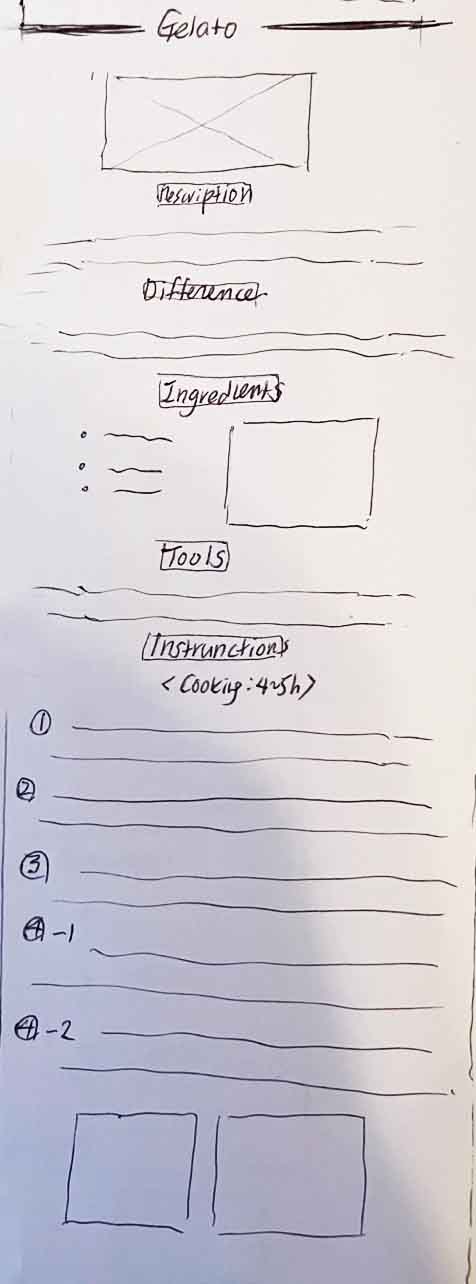 Gelato
Description
Difference
Ingredients
Tools
Instrunctions
<Cooking: 4~5h>
①
②
③
④-1
④-2